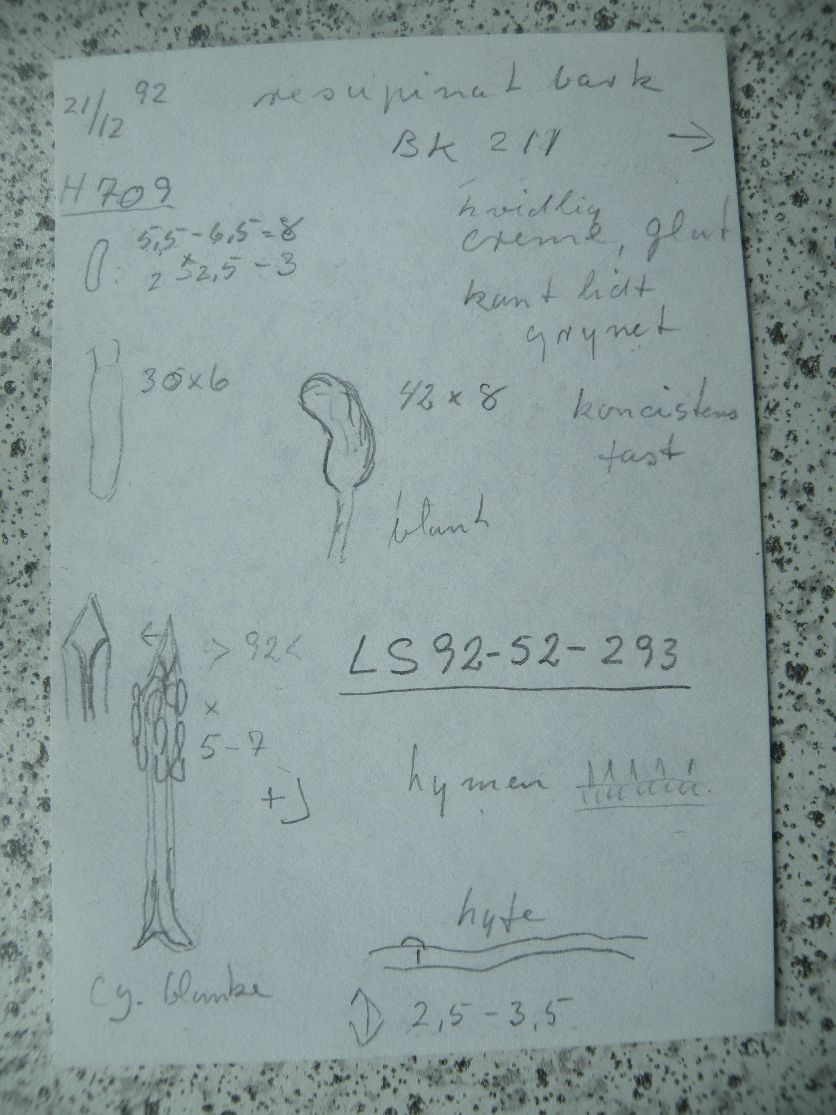 21/12 92
resupinat bark
BK 211 →
H 709
hvidlig
creme, glat
5,5-6,5-8
x
2-2,5-3
kant lidt
grynet
30x6
42 x 8
koncistens
fast
blank
> 92 <
x
5-7
LS 92-52-293
hymen
hyfe
Cy. blanke
2,5-3,5